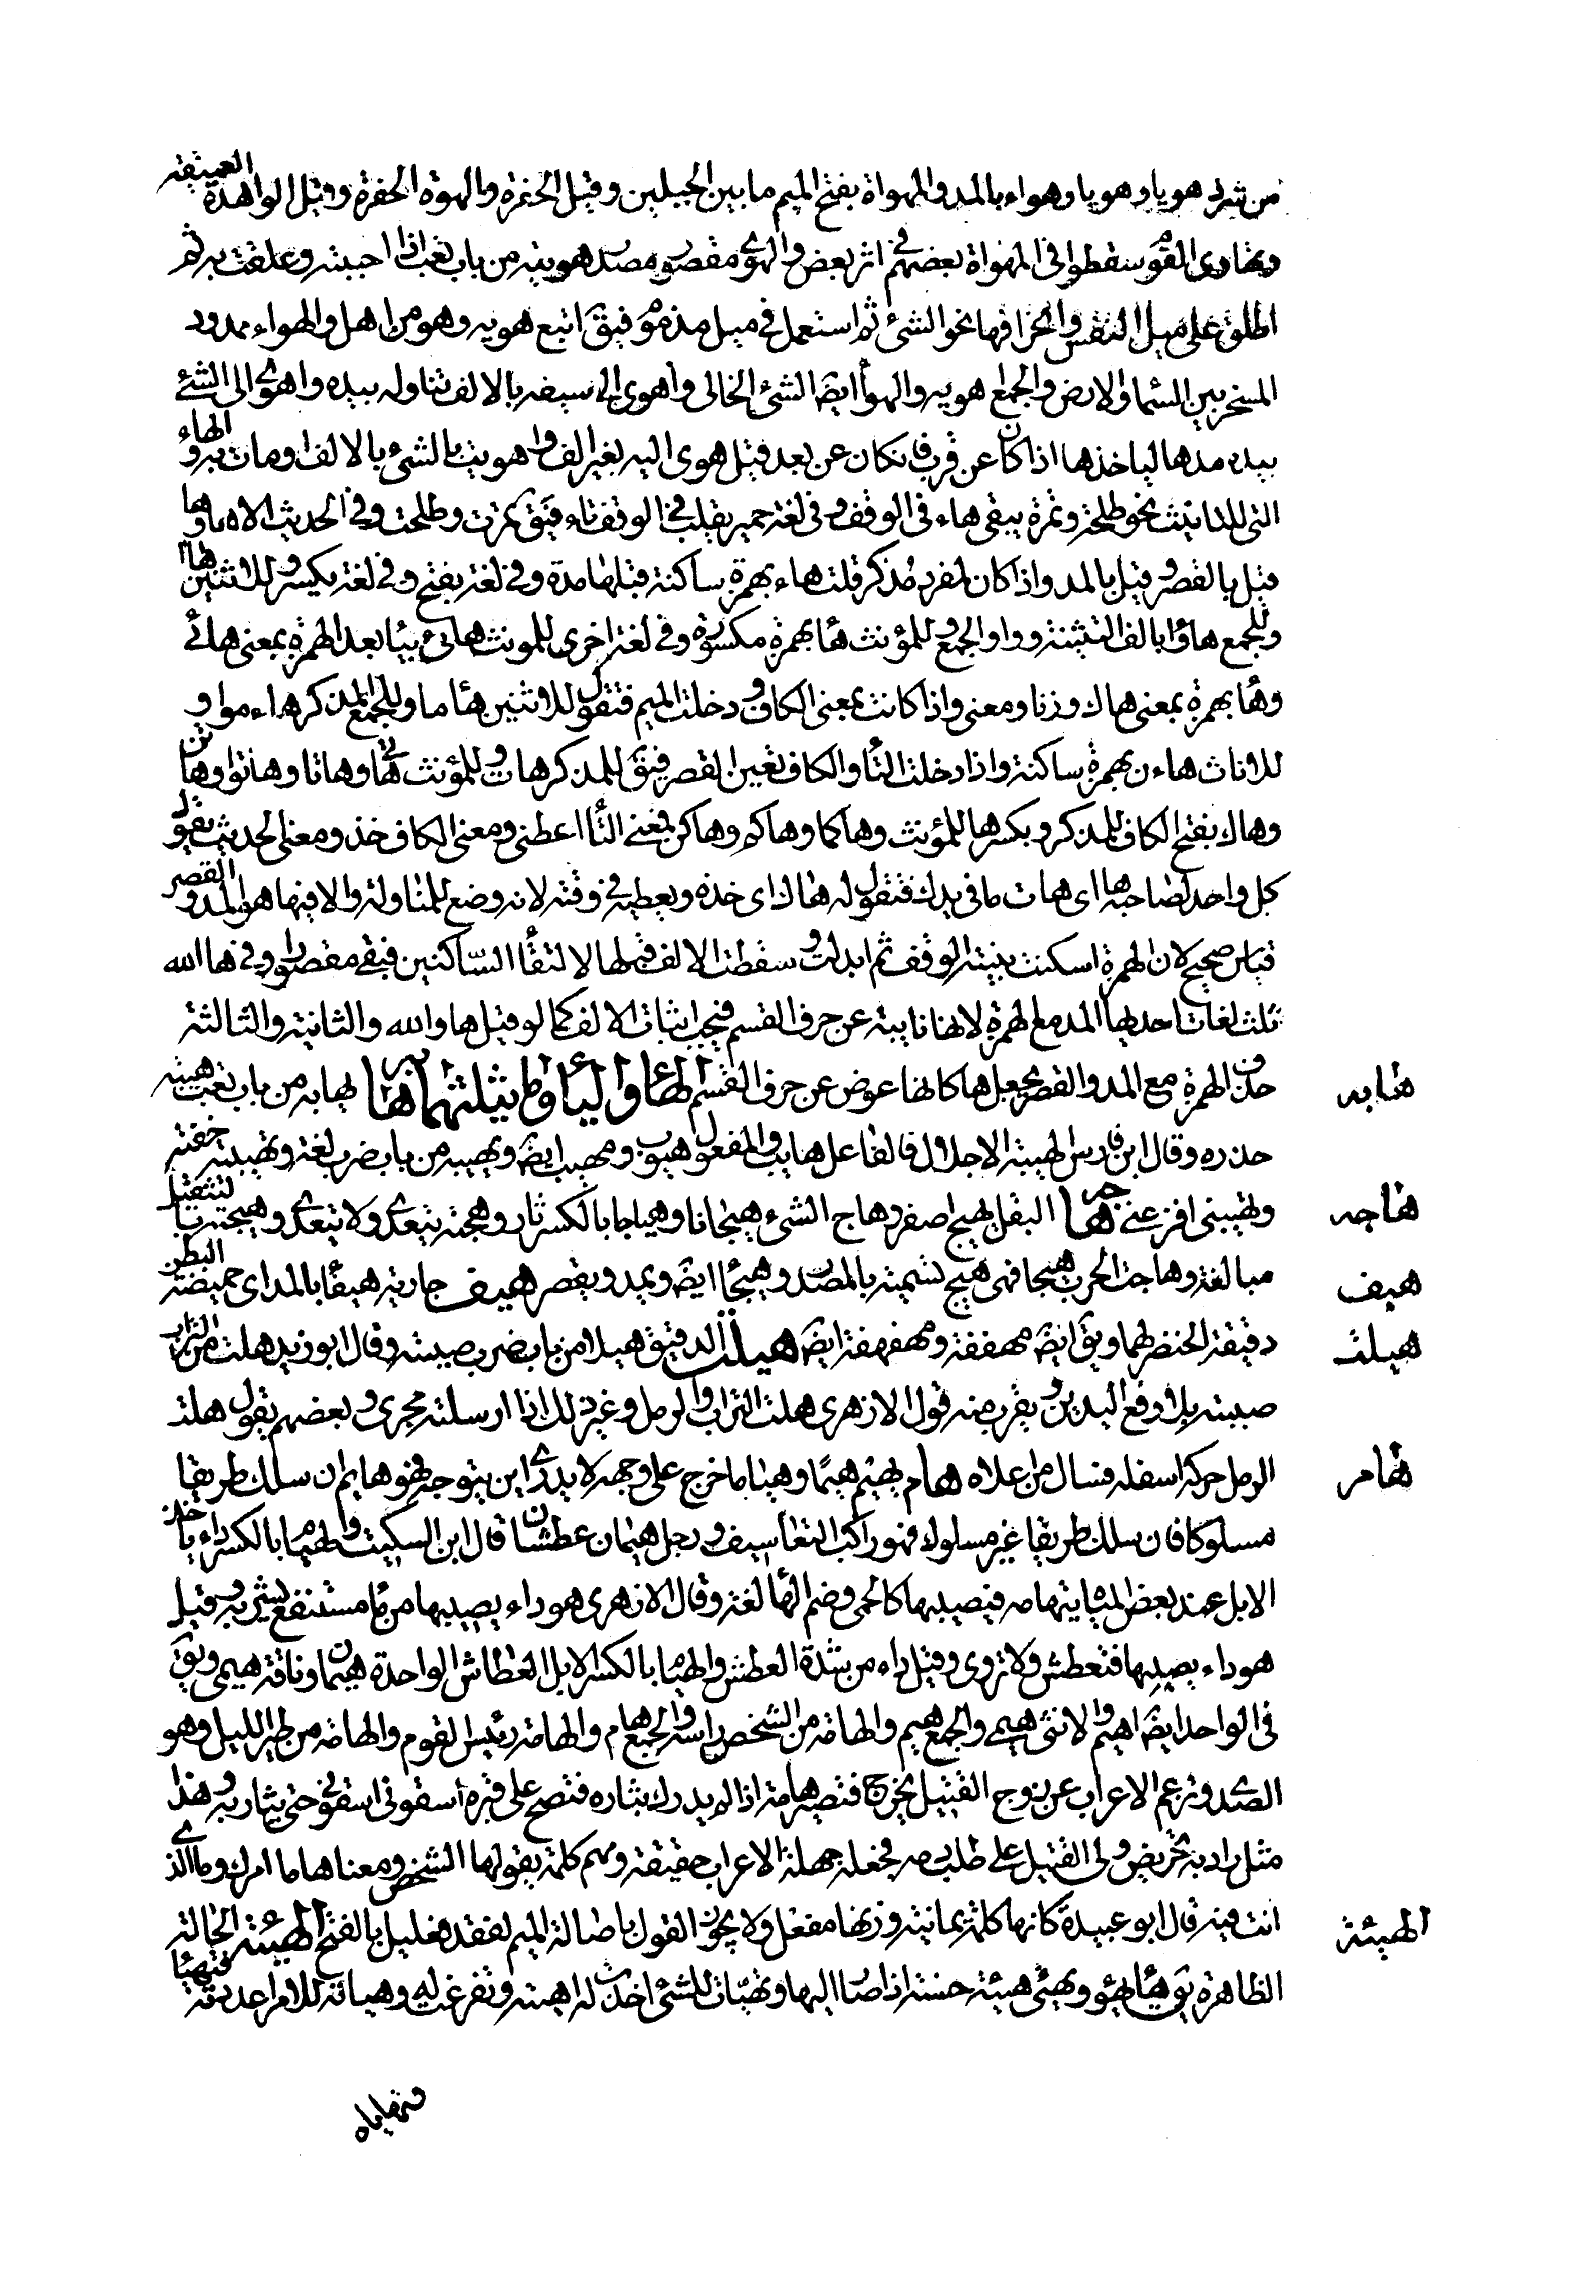 من شرد هويا وهويا وهواء بالمد والمهواة بفتح الميم ما بين الجبلين وقيل الحفرة والهوة الحفرة وقيل الواهدة العميقة
وتهاوى القوم سقطوا في المهواة بعضهم في اثر بعض والهوى مقصور مصدر هويته من باب تعب اذا احببته وعلقت به ثم
اطلق على ميل النفس وانحرافها نحو الشئ ثم استعمل في ميل مذموم فيق اتبع هويه وهو من اهل والهواء ممدود
المسخر بين السما والارض والجمع اهويه والهوأ ايضَ الشئ الخالى واهوى الى سيفه بالالف تناوله بيده واهوى الى الشئ
بيده مدها لياخذها اذا كان عن قرب فان كان عن بعد قيل هوى اليه بغير الف واهويت بالشئ بالالف اومات به والهاء
التى للتانيث نحو طلحة وتمرة يبقى هاء فى الوقف وفى لغة حمير يقلب في الوقف تاء فيق تمرت وطلحت وفي الحديث الا هاء وها
قيل بالقصر وقيل بالمد واذا كان لمفرد مذكر قلت هاء بهمزة ساكنة قبلها مدة وفي لغة بفتح وفي لغة بكسر وللاثنين هاا
وللجمع هاؤا بالف التثنية وواو الجمع وللمؤنث هاء بهمزة مكسورة وفي لغة اخرى للمونث هائى بيا بعد الهمزة بمعنى هائى
وهاء بهمزة بمعنى هاك وزنا ومعنى واذا كانت بمعنى الكاف ودخلت الميم فتقول للاثنين هاء ما وللجمع المذكر هاء موا و
للاناث هاء ن بهمزة ساكنة واذا دخلت التأ والكاف تعين القصر فيق للمذكر هات وللمؤنث هاتى وهاتا وهاتوا وهاتن
وهاك بفتح الكاف للمذكر وبكسرها للمؤنث وهاكما وهاكم وهاكن بمعنى التأ اعطنى ومعنى الكاف خذ ومعنى الحديث يقول
كل واحد لصاحبه ها اى هات ما فى يدك فتقول له هاك اى خذه ويعطيه في وقته لانه وضع للمناولة والا فيها هو المد والقصر
قياس صحيح لان الهمزة اسكنت بنية الوقف ثم ابدلت وسقطت الالف قبلها لالتقأ الساكنين فبقى مقصورا وفي ها الله
ثلث لغات احديها المد مع الهمزة لانها نايبة عن حرف القسم فيجب اثبات الالف كما لو قيل ها والله والثانية والثالثة
حذف الهمزة مع المد والقصر بجعل ها كانها عوض عن حرف القسم الهاء والياء وما يثلثهما هابه يهابه من باب تعب هيبة
هابه
حذره وقال ابن فارس الهيبة الاجلال فالفاعل هايب والمفعول هيوب ومهيب ايضَ ويهيبه من باب ضرب لغة وتهيبته خفته
وتهيبنى افزعنى هاجه البقل يهيج اصفر وهاج الشئ هيجانا وهياجا بالكسر ثار وهجته يتعدى ولا يتعدى وهيجته بالتثقيل
هاجه
مبالغة وهاجت الحرب هيجا فهى هيج تسمية بالمصدر وهيجأ ايضَ ويمد ويقصر هيف جارية هيفأ بالمد اى خميصة البطن
هيف
دقيقة الخضر لهما ويق ايضَ مهففة ومهفهفة ايضَ هيلت الدقيق هيلا من باب ضرب صببته وقال ابو زيد هلت من التراب
هيلت
صببته بلا رفع اليدين ويقرب منه قول الازهرى هلت التراب والرمل وغير ذلك اذا ارسلته فجرى وبعضهم يقول هلت
الرمل حركه اسفله فسال من اعلاه هام يهيم هيما وهياما خرج على وجهه لا يدرى اين يتوجه فهو هايم ان سلك طريقا
هامر
مسلوكا فان سلك طريقا غير مسلوك فهو راكب التعاسيف ورجل هيمان عطشان قال ابن السكيت والهيام بالكسر داء ياخذ
الابل عند بعض المياه بتهامه فيصيبها كالحمى وضم الهأ لغة وقال الازهرى هو داء يصيبها من ماء مستنقع تشربه وقيل
هو داء يصيبها فتعطش ولا تروى وقيل داء من شدة العطش والهيام بالكسر الابل العطاش الواحدة هيمان وناقة هيمى ويق
فى الواحد ايضَ اهيم والانثى هيمى والجمع هيم والهامه من الشخص راسه والجمع هام والهامة رئيس القوم والهامه من طير الليل وهو
الصدى وتزعم الاعراب عن روح القتيل يخرج فتصير هامة اذا لم يدرك بثاره فتصيح على قبره اسقونى اسقونى حتى يثار به وهذا
مثل يراد به تحريض ولى القتيل على طلب دمه فجعله جهلة الاعراب حقيقة ومهيم كلمة يقولها الشخص ومعناها ما امرك وما الذى
انت فيه قال ابو عبيدة كانها كلمة يمانية وزنها مفعل ولا يجوز القول باصالة الميم لفقد فعليل بالفتح الهيئة الحالة
الهيئة
الظاهرة يق هيأ يهيؤ ويهئى هيئة حسنة اذا صار اليها وتهيّات للشئ اخذت له اهبته وتفرغت له وهياته للامر اعددته فتهيأ